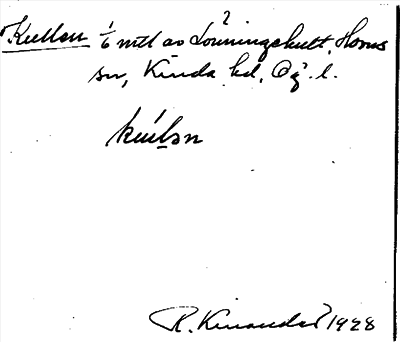 Kullen 1/6 mtl av Lönningehult, Horns
sn, Kinda hd, Ög. l.
kúlən
R. Kinander 1928